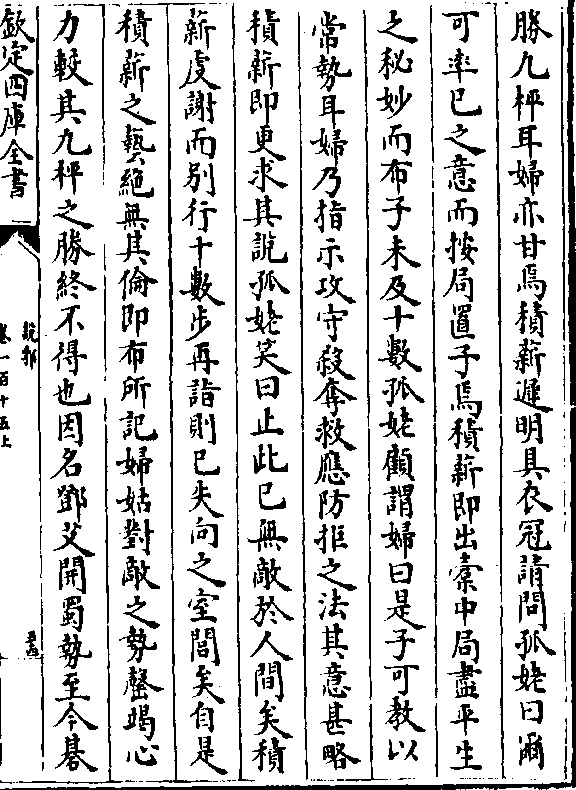 勝九枰耳婦亦甘焉積薪遲明具衣冠請問孤姥曰爾
可率已之意而按局置子焉積薪即出槖中局盡平生
之秘妙而布子未及十數孤姥顧謂婦曰是子可教以
常勢耳婦乃指示攻守殺奪救應防拒之法其意甚略
積薪即更求其說孤姥笑曰止此已無敵於人間矣積
薪虔謝而别行十數步再詣則已失向之室閭矣自是
積薪之藝絶無其倫即布所記婦姑對敵之勢罄竭心
力較其九枰之勝終不得也因名鄧艾開蜀勢至今棊
欽定四庫全書
說郛
卷一百十五上